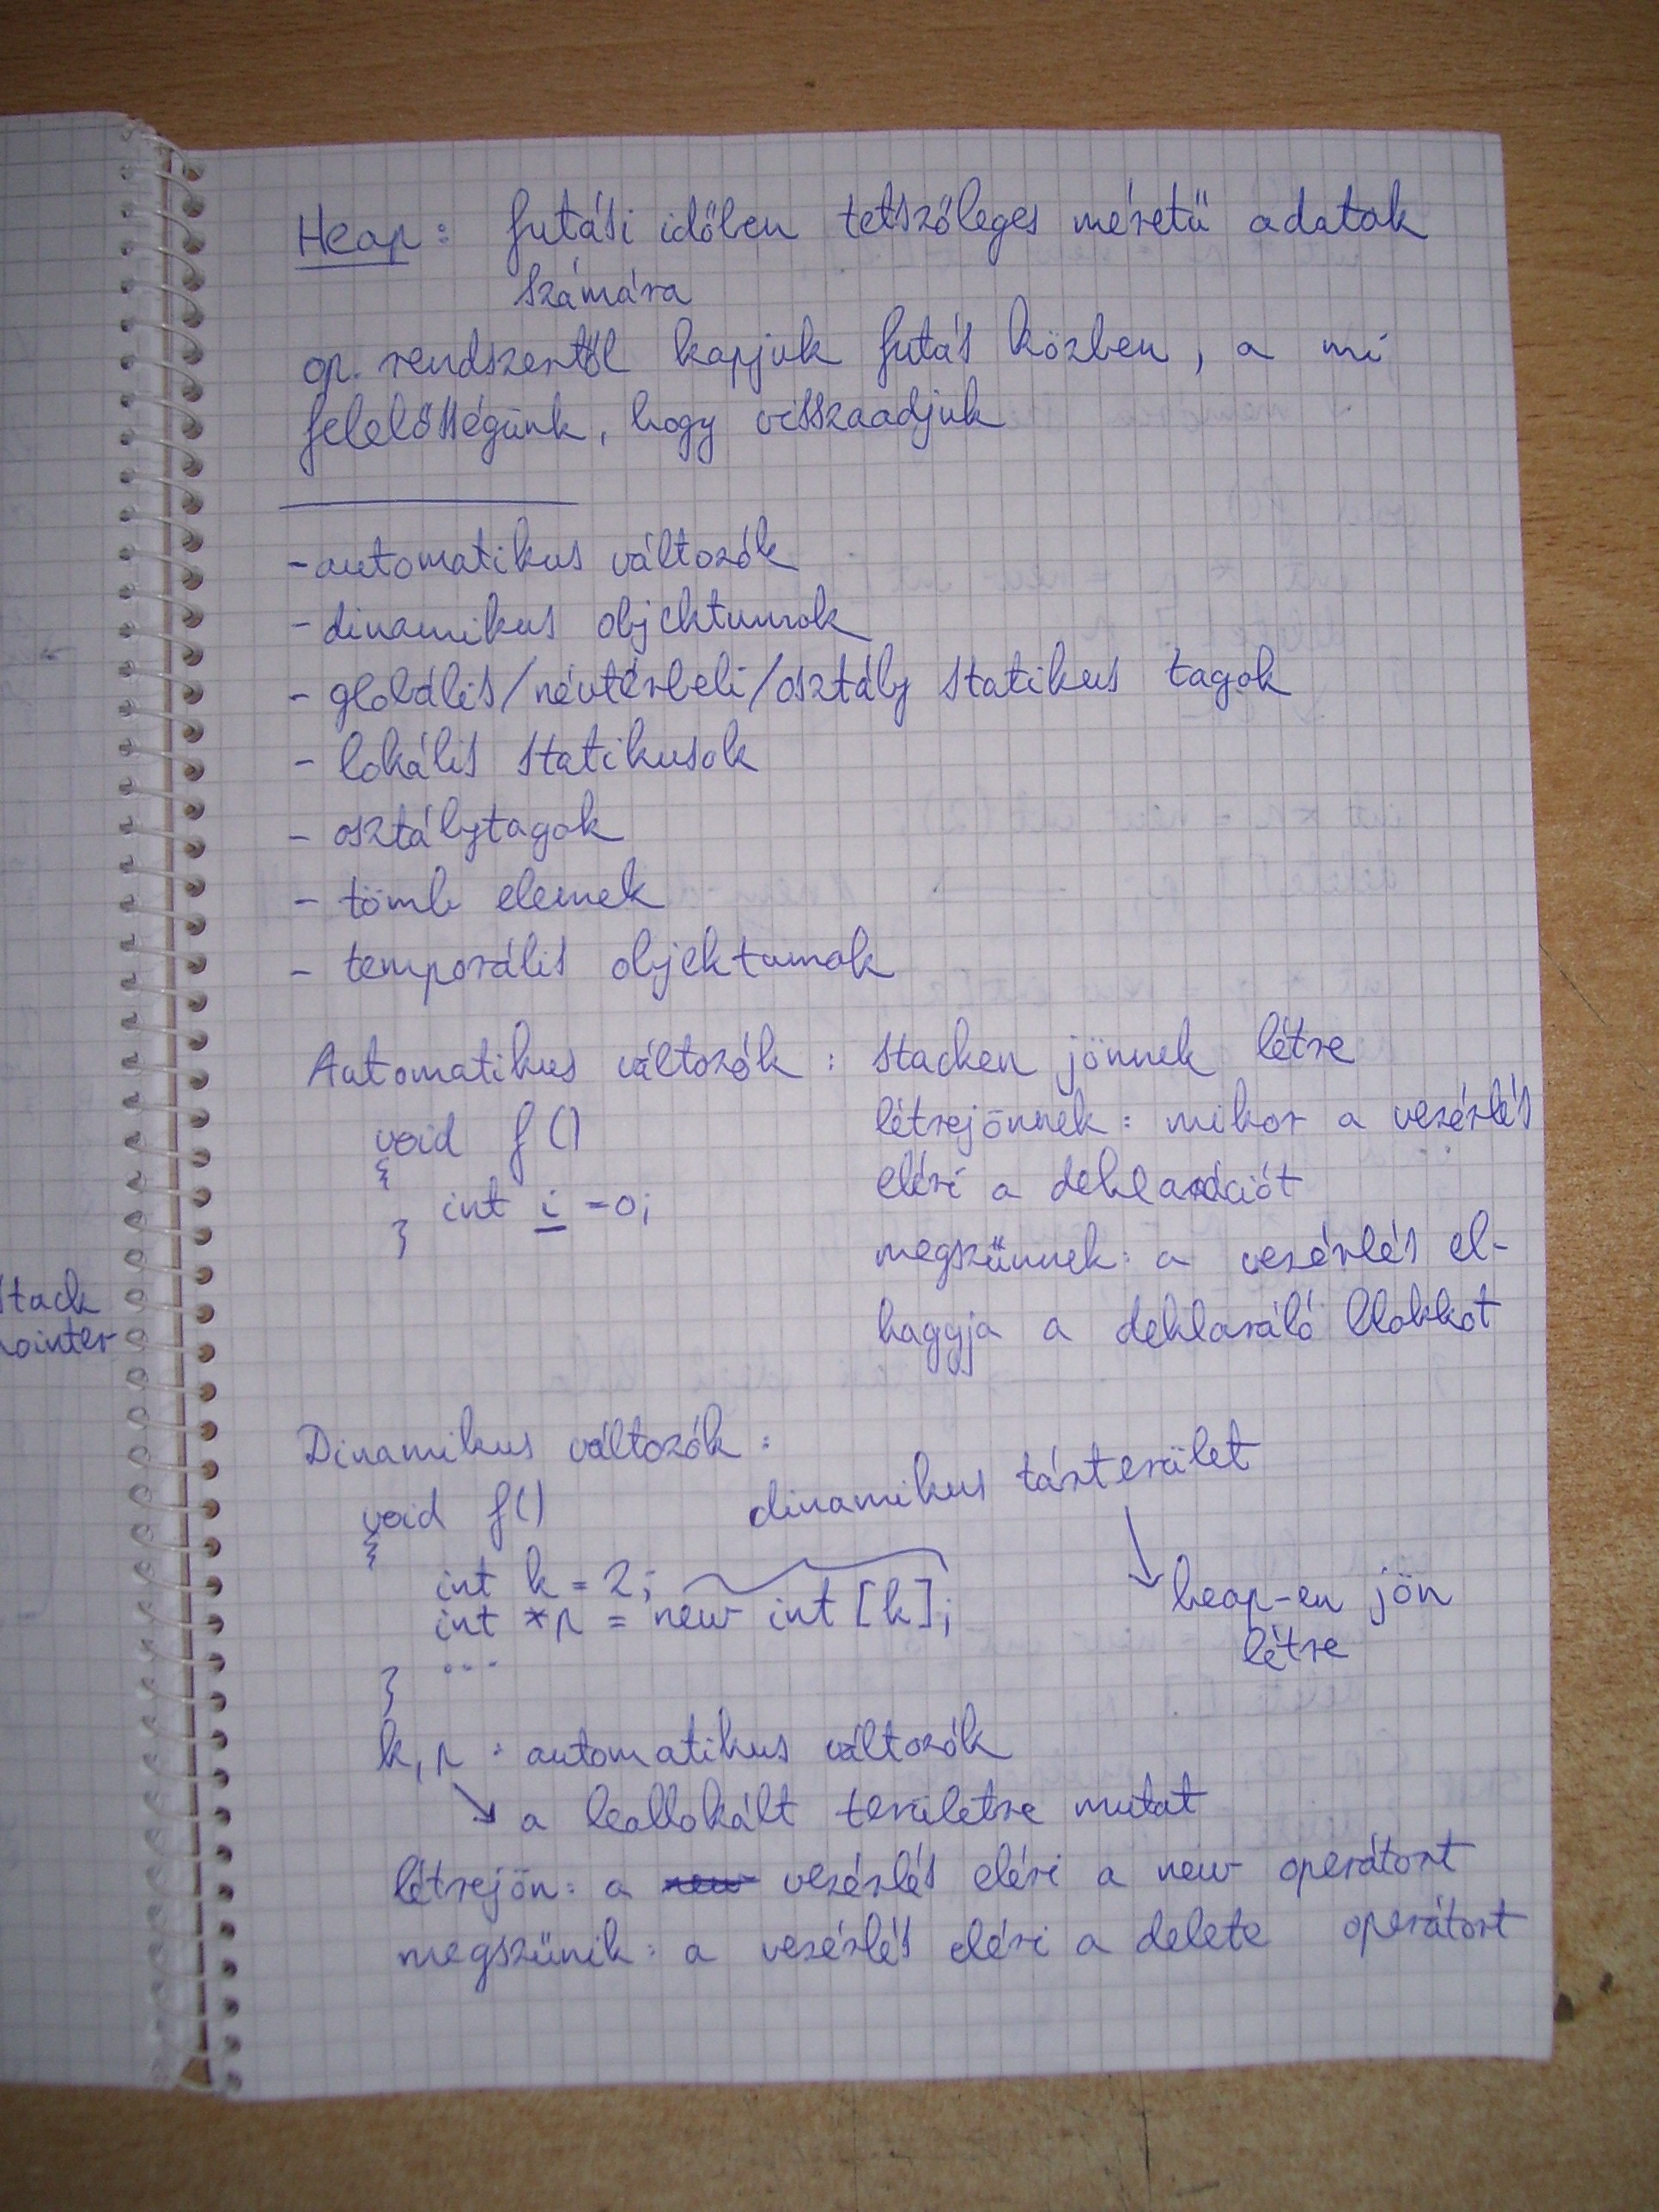 Heap: futási időben tetszőleges méretű adatok
számára
op. rendszertől kapjuk futás közben, a mi
felelősségünk, hogy visszaadjuk
- automatikus változók
- dinamikus objektumok
- globális/névtérbeli/osztály statikus tagok
- lokális statikusok
- osztálytagok
- tömb elemek
- temporális objektumok
Automatikus változók: stacken jönnek létre
void f()
{
int i = 0;
}
létrejönnek: mikor a vezérlés
eléri a deklarációt
megszűnnek: a vezérlés el-
hagyja a deklaráló blokkot
stack
pointer
Dinamikus változók:
void f()
{
int k = 2;
int *p = new int [k];
...
}
dinamikus tárterület
heap-en jön
létre
k, p: automatikus változók
a leallokált területre mutat
létrejön: a new vezérlés eléri a new operátort
megszűnik: a vezérlés eléri a delete operátort